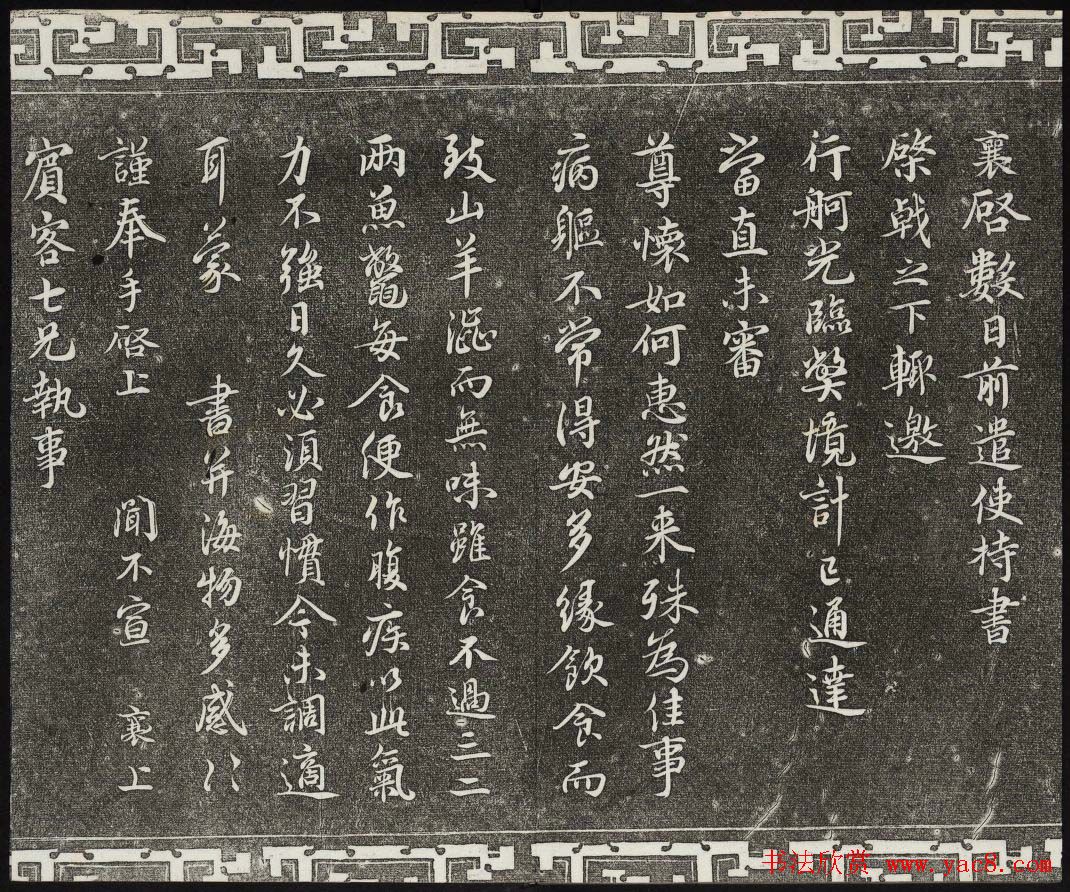 襄啓數日前遣使持書
棨戟之下輒邀
行舸光臨獘境計已通達
當直未審
尊懷如何惠然一来殊為佳事
病軀不常得安多緣飲食而
致山羊澁而無味雖食不過三二
兩魚鼈每食便作腹疾以此氣
力不強日久必須習慣今未調適
耳蒙 書并海物多感〻
謹奉手啓上 聞不宣 襄上
賓客七兄執事
书法欣赏 www.yac8.com